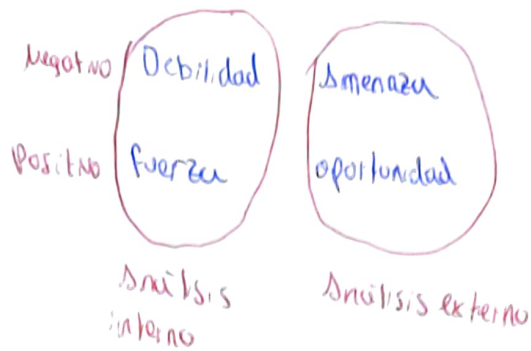 Negativo Debilidad Amenaza
Positivo fuerza oportunidad
Análisis
interno
Análisis externo